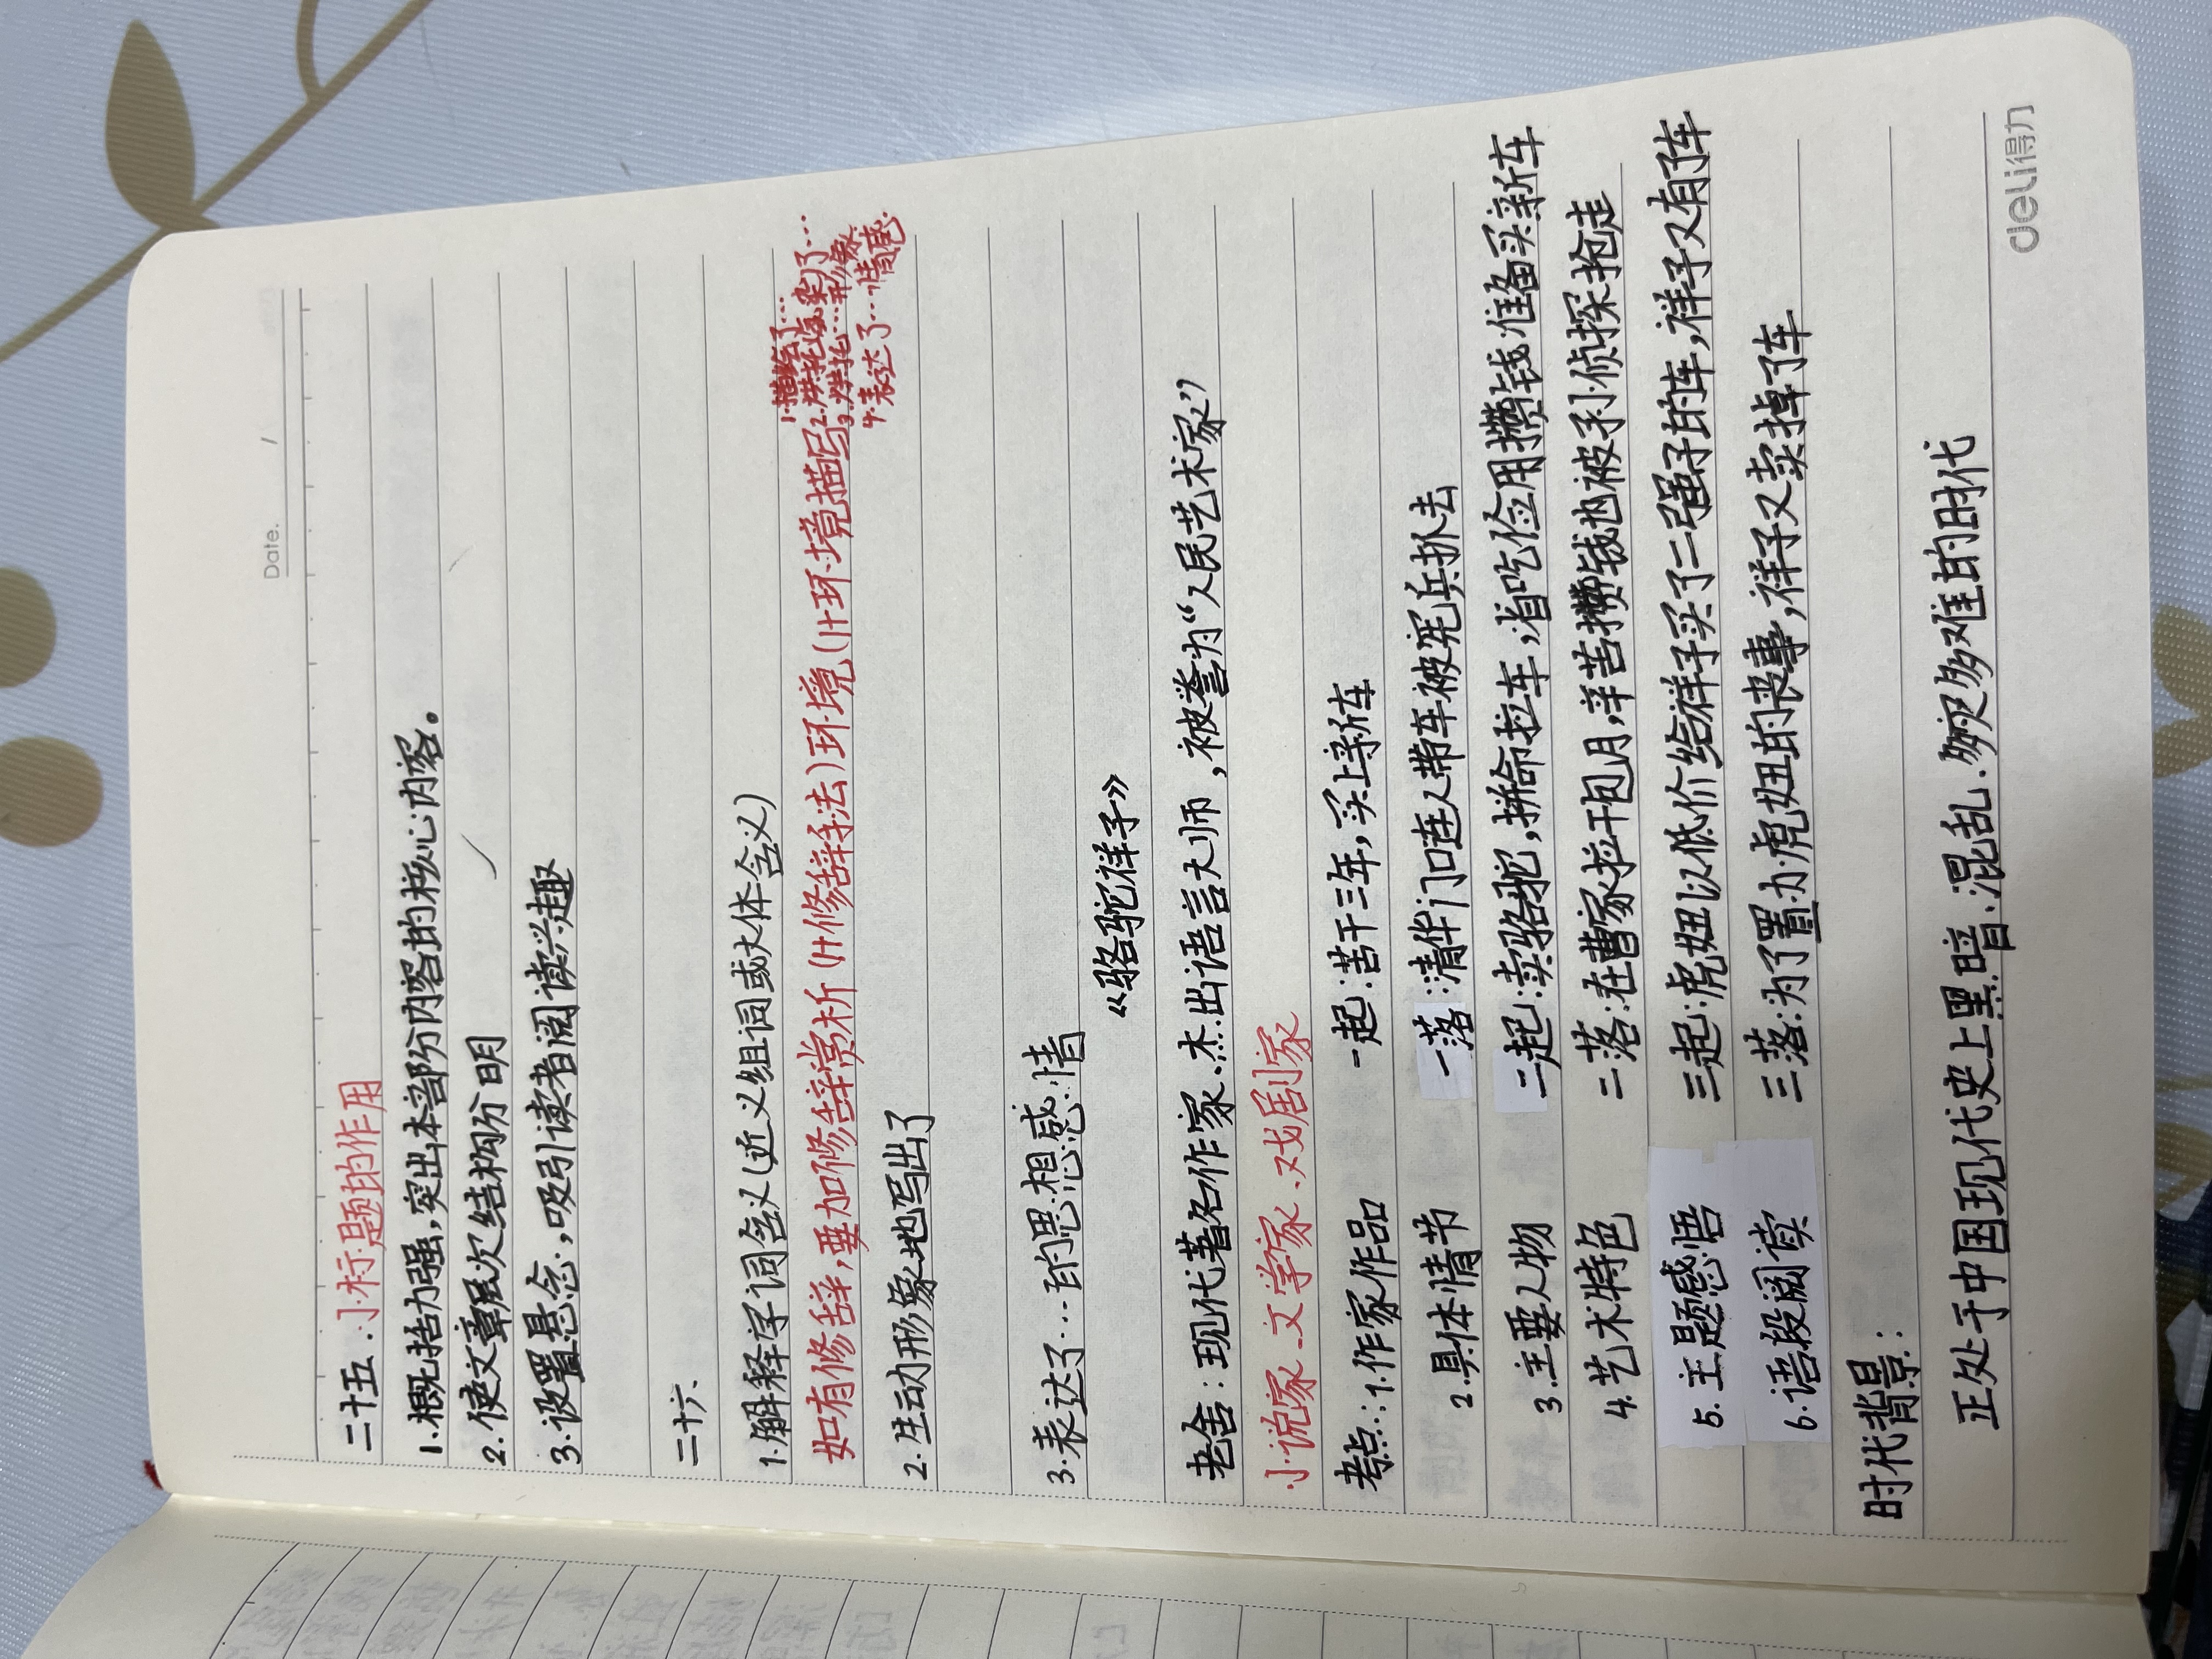 Date. /
二十五.小标题的作用
1.概括力强,突出本部分内容的核心内容。
2.使文章层次结构分明
3.设置悬念,吸引读者阅读兴趣
二十六、
1.解释字词含义(近义组词或大体含义)
如有修辞,要加修辞赏析(1+修辞手法)环境(1+环境描写
1.描绘了…
2.烘托渲染了…
3.烘托…形象
4.表达了…情感
2.生动形象地写出了
3.表达了…的思想感情
《骆驼祥子》
老舍:现代著名作家、杰出语言大师,被誉为“人民艺术家”
小说家、文学家、戏剧家
考点:1.作家作品 一起:苦干三年,买上新车
2.具体情节 一落:清华门口连人带车被宪兵抓去
3.主要人物 二起:卖骆驼,拼命拉车,省吃俭用攒钱准备买新车
4.艺术特色 二落:在曹家拉干包月,辛苦攒钱也被孙侦探抢走
5.主题感悟 三起:虎妞以低价给祥子买了二强子的车,祥子又有了车
6.语段阅读 三落:为了置办虎妞的丧事,祥子又卖掉了车
时代背景:
正处于中国现代史上黑暗、混乱、多灾多难的时代
deli得力